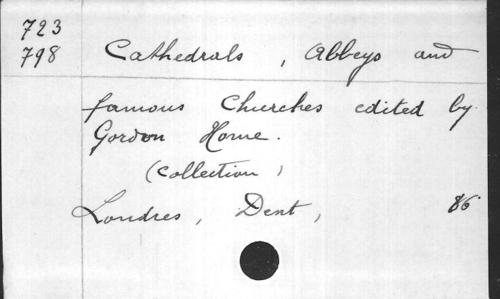 723
798 Cathedrals, Abbeys and
famous Churches edited by
Gordon Home.
(Collection)
Londres, Dent, 86